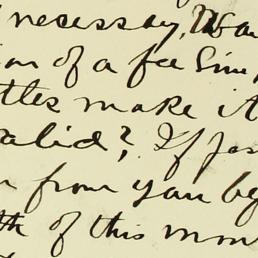 necessary,
ion of a fee Sim
ttles make it
alid? If
from you by
th of this mon